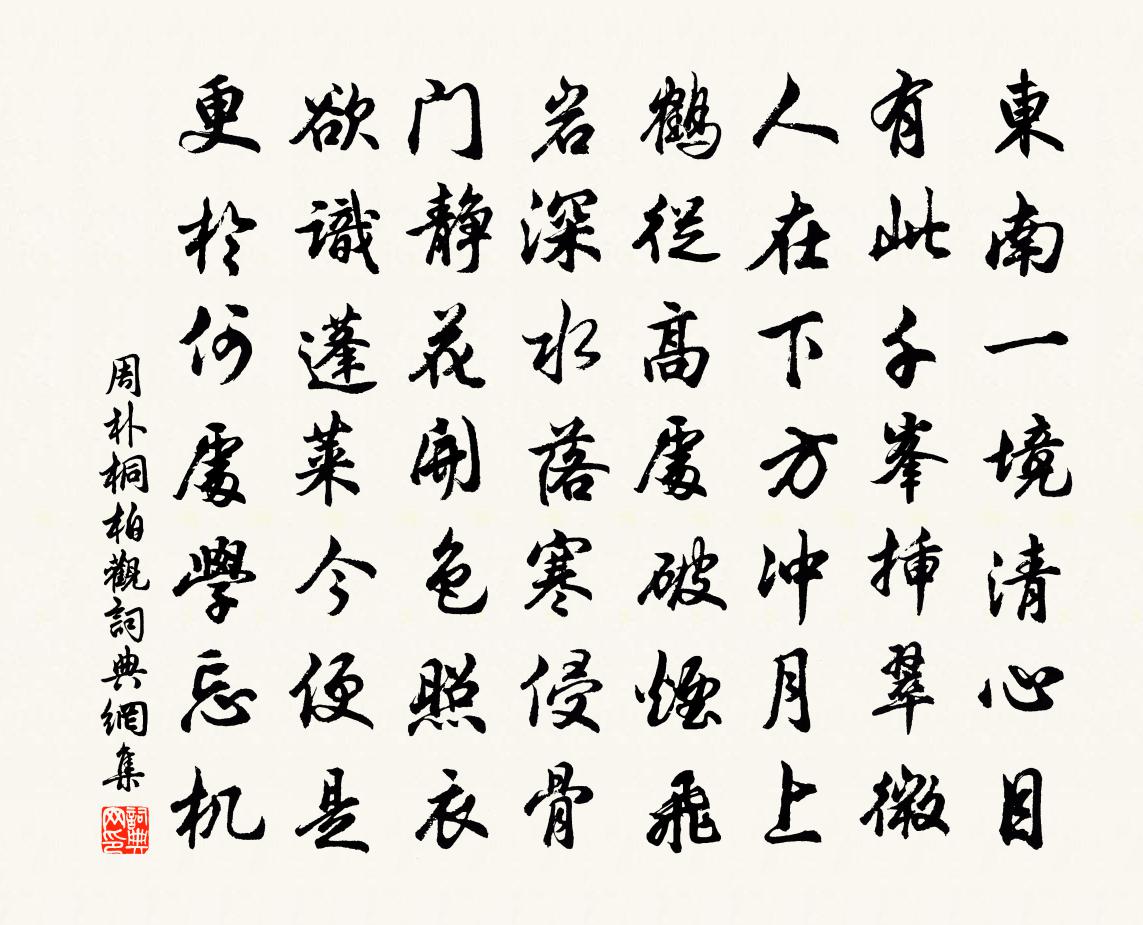 東南一境清心目
有此千峯挿翠微
人在下方冲月上
鶴從高處破煙飛
岩深水落寒侵骨
门静花開色照衣
欲識蓬萊今便是
更於何處學忘机
周朴桐柏觀詞典網集
詞典网印